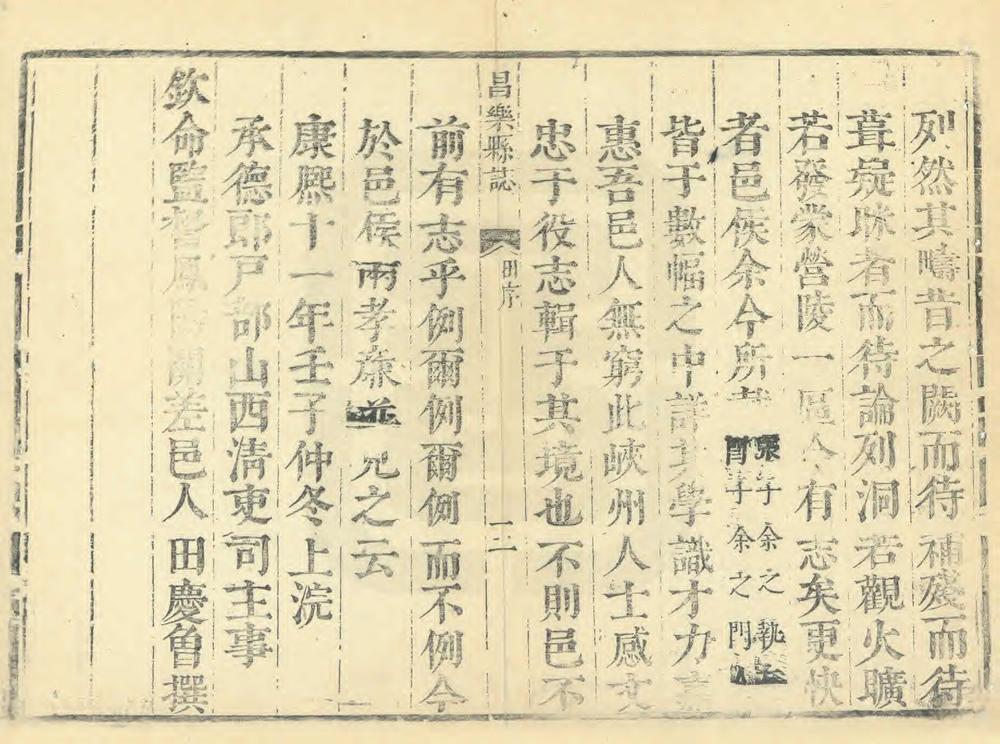 列然其疇昔之闕而待補殘而待
葺疑昧者而待論列洞若觀火曠
若發蒙營陵一區今有志矣更快
者邑侯余今所 張年余之執 年余之門
皆于數幅之中 其學識才力
惠吾邑人無窮此峽州人士感文
忠于役志輯于其境也不則邑不
昌樂縣誌 田序 二
前有志乎例爾例爾例而不例今
於邑侯兩孝廉 元之云
康熙十一年壬子仲冬上浣
承德郎戶部山西清吏司主事
欽命監督鳳陽關差邑人田慶曾撰